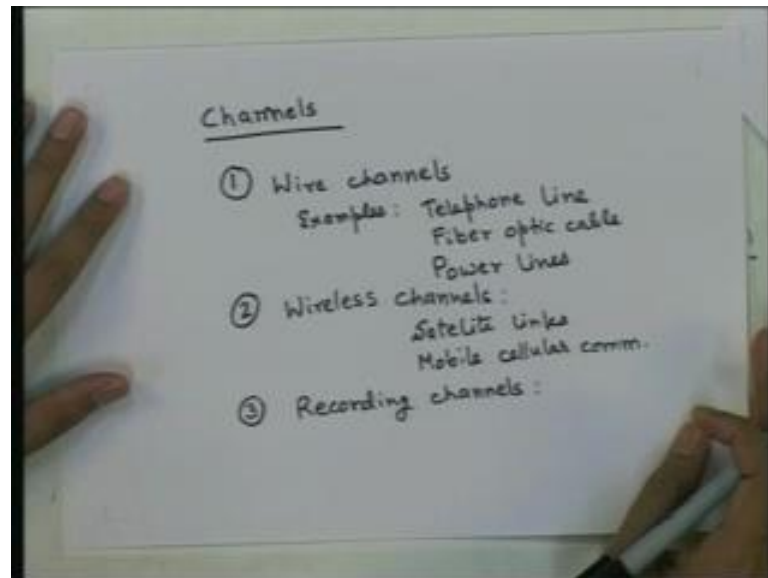 Channels
① Wire channels
Examples: Telephone Line
Fiber optic cable
Power Lines
② Wireless channels:
Satelite Links
Mobile cellular comm.
③ Recording channels: